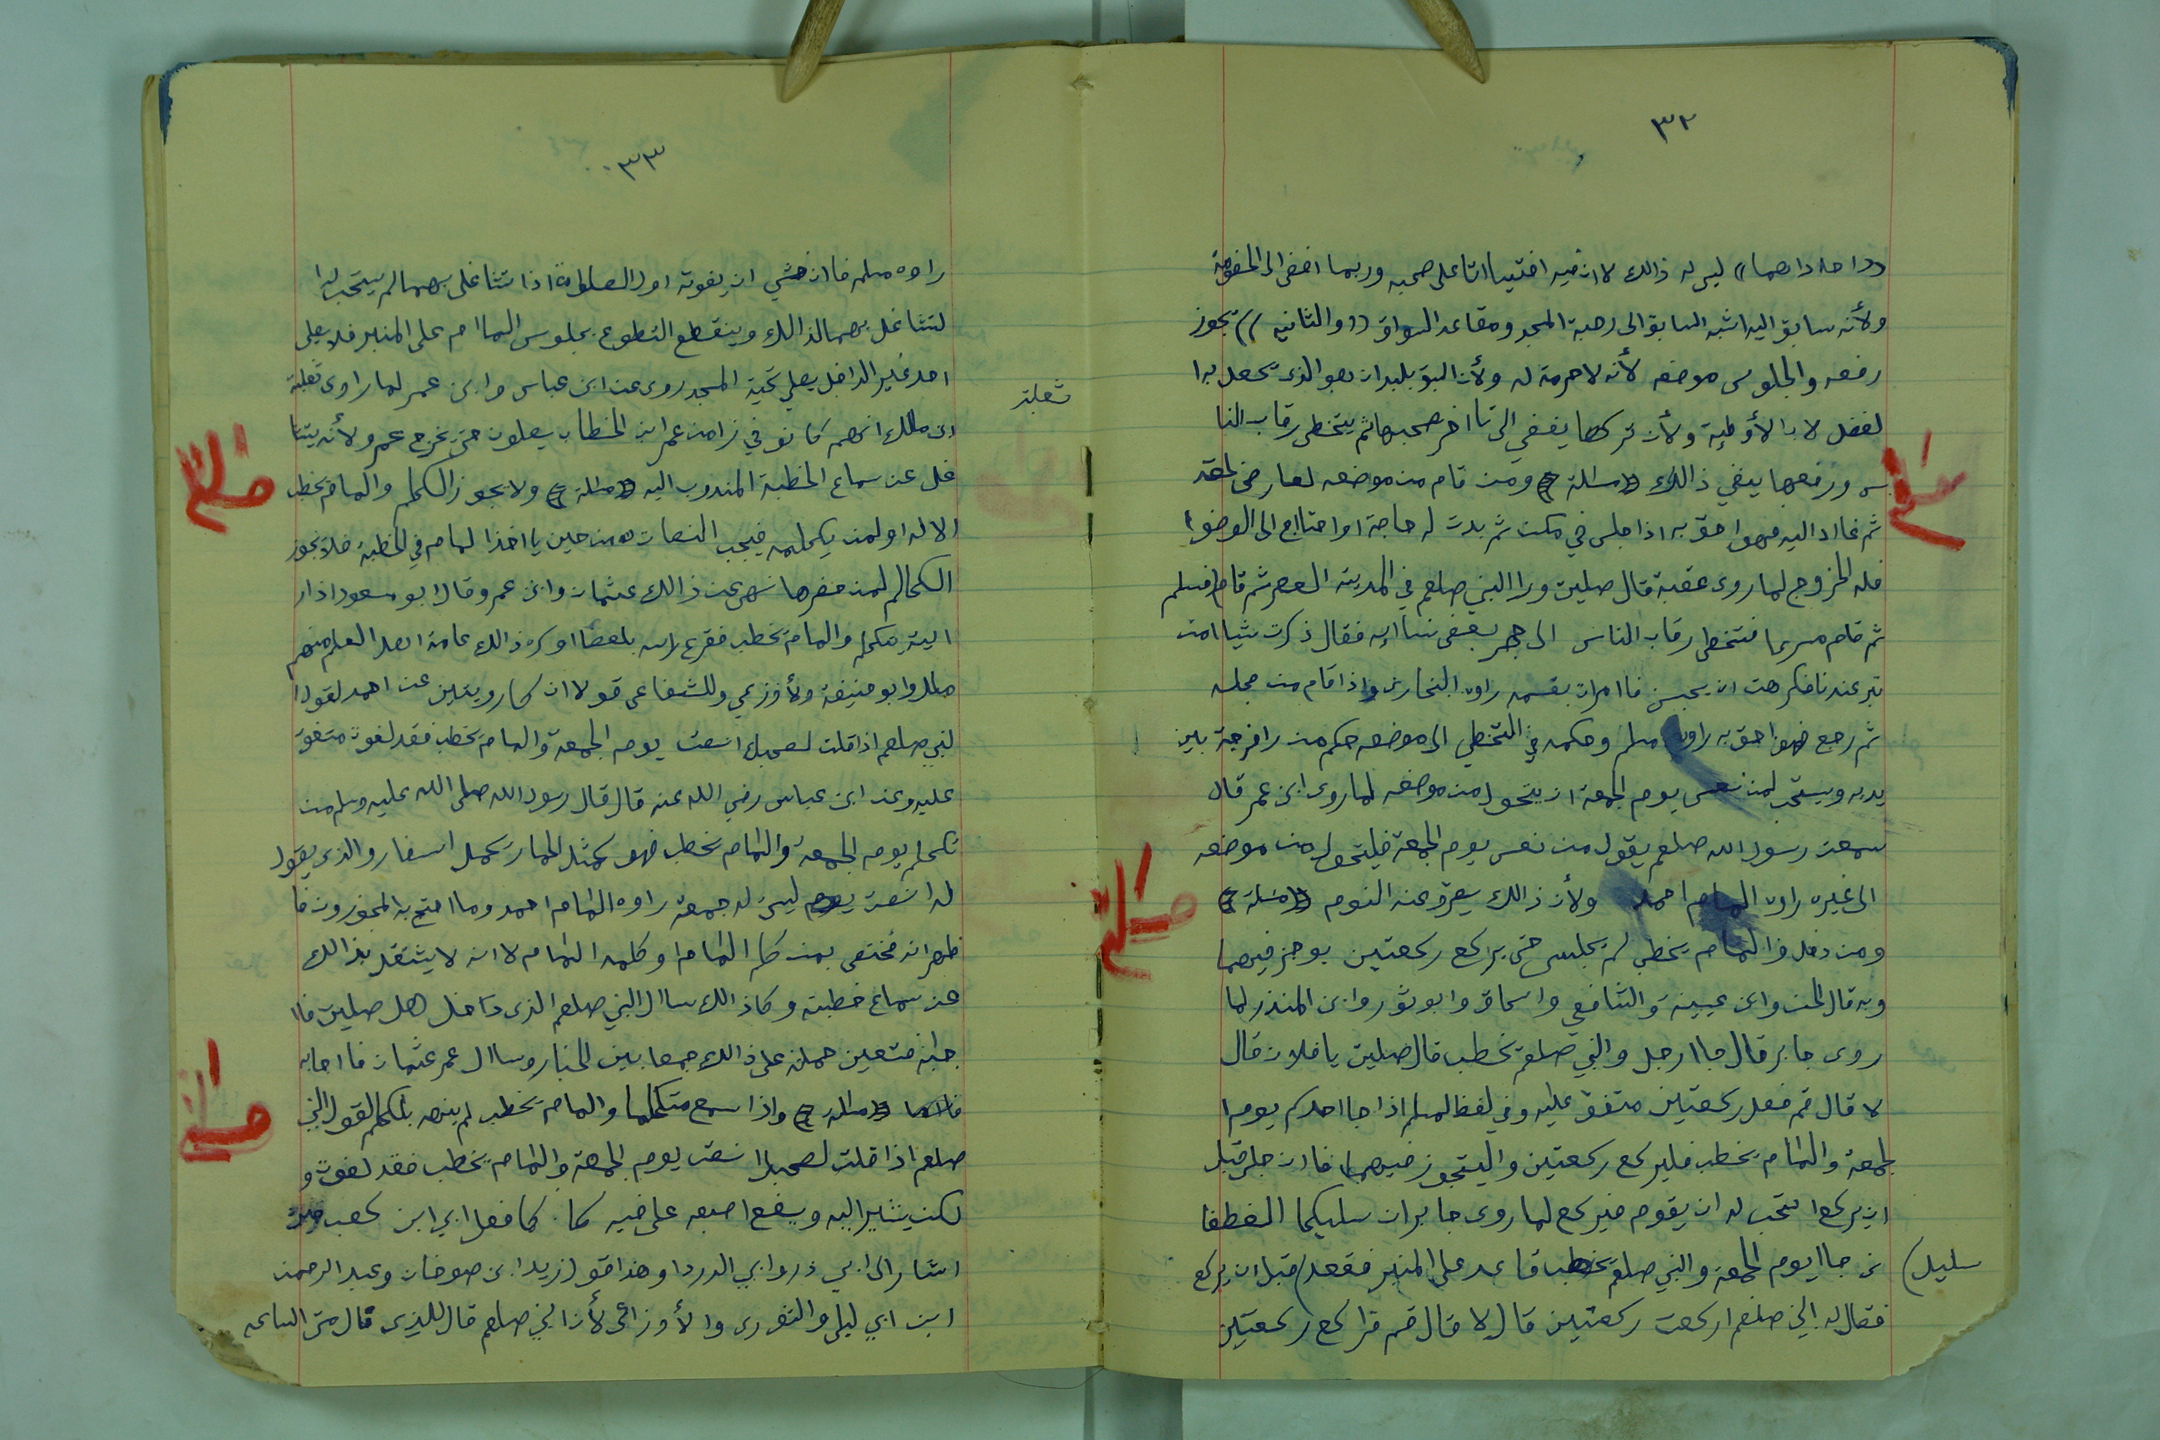 ٣٢
((احداهما)) ليس له ذالك لان فيه افتياتا على صحبه وربما افضى الى الخصومة
ولأنه سابق اليه اشبه السابق الى رحبة المسجد ومقاعد السواق ((والثانيه)) تجوز
رفعه والجلوس موضعه لأنه لا حرمة له ولأن السبق بلبدان هو الذى تحصل به ا
لفضل لا بالأوطية ولأن تركها يفضي الى تاا خر صحبها ثم يتخطى رقاب النا
س ورفعها ينفي ذالك (مسئلة) ومن قام من موضعه لعارض لحقه
ثم عاد اليه فهوا حق به اذا جلس في مكن ثم بدت له حاجة او احتاج الى الوضوا
فله الخروج لما روى عقبة قال صليت ورا النبي صلعم في المدينة العصر ثم قام فسلم
ثم قام مسرعا فتخطى رقاب الناس الى حجر بعض نسااإه فقال ذكرت شيا امن
تبر عندنا فكرهت ان يحبسن فاامرت بقسمه راوه البخارى واذا قام من مجلسه
ثم رجع فهوا حق به راوه مسلم وحكمه في التخطي الى موضعه حكم من را فرجة بين
يديه ويستحب لمن نعس يوم الجمعة ان يتحول من موضعه لما روى ابن عمر قال
سمعت رسول الله صلعم يقول من نعس يوم الجمعة فليتحول من موضعه
الى غيره راوه المام احمد ولأن ذالك يصرف عنه النوم (مسئلة)
ومن دخل والمام يخطب لم يجلس حتى يركع ركعتين يوجز فيهما
وبه قال الحسن وابن عيينة والشافعي واسحاق وابو ثور وابن المنذر لما
روى جابر قال جاا رجل والنبي صلعم يخطب قال صليت يا فلان قال
لا قال قم فصل ركعتين متفق عليه وفي لفظ لمسلم اذا جا احدكم يوم ا
لجمعة والمام يخطب فليركع ركعتين واليتجوز فيهما فاان جلس قبل
ان يركع استحب له ان يقوم فيركع لما روى جابر ان سليكا الغطفا
سليك) نى جاا يوم الجمعة والنبي صلعم يخطب قاعد على المنبر فقعد قبل ان يركع
فقال له النبي صلعم اركعت ركعتين قال لا قال قم فاركع ركعتين
٣٣
راوه مسلم فاان خشي ان يفوته اول الصلوة اذا تشاغل بهما لم يستحب له ا
لتشاغل بهما لذالك وينقطع التطوع بجلوس الماام على المنبر فلا يصلى
احد غير الداخل يصلي تحية المسجد روى عن ابن عباس وابن عمر لما راوى ثعلبة
ثعلبة
ابى مالك انهم كانو في زامن عمر ابن الخطاب يصلون حتى يخرج عمر ولأنه يتشا
غل عن سماع الخطبة المندوب اليه (مسئلة) ولا يجوز الكلام والمام يخطب
الا له او لمن يكلمه فيجب النصات من حين يااخذ المام في الخطبة فلا يجوز
الكلام لمن حضرها نهى عن ذالك عثمان وابن عمر وقال ابو مسعود اذا را
ايته يتكلم والمام يخطب فقرع راسه بلعصا اوكره ذالك عامة اهل العلم منهم
مالك وابو حنيفة ولأوزعي وللشفاعى قولاان كارويتين عن احمد لقول ا
لنبي صلعم اذا قلت لصحبك انصت يوم الجمعة والمام يخطب فقد لغوت متفق
عليه وعن ابن عباس رضي الله عنه قال قال رسول الله صلى الله عليه وسلم من
تكلم يوم الجمعة والمام يخطب فهو كمثل الحمار يحمل اسفار والذى يقول
له انصت ليس له جمعة راوه المام احمد وما احتج به المجوزون فا
ظهر انه مختص بمن كلم المام او كلمه المام لاانه لا يشتغل بذالك
عن سماع خطبته وكاذالك سال النبي صلعم الذى داخل هل صليت فاا
جابه فتعين حمله على ذالك جمعا بين الخبار وسال عمر عثمان فااجابه
(مسئلة) واذا سمع متكلما والمام يخطب لم ينهه بلكلام لقول النبي
صلعم اذا قلت لصحبك انصت يوم الجمعة والمام يخطب فقد لغوت و
لكن يشير اليه ويضع اصبعه على فيه كا. كافعل ابي ابن كعب
اشار الى ابي ذر وابي الدردا وهذا قول زيد ابن صوحان وعبد الرحمن
ابن ابي ليلى والثورى والأوزاعى لأن النبي صلعم قال للذى قال متى الساعه